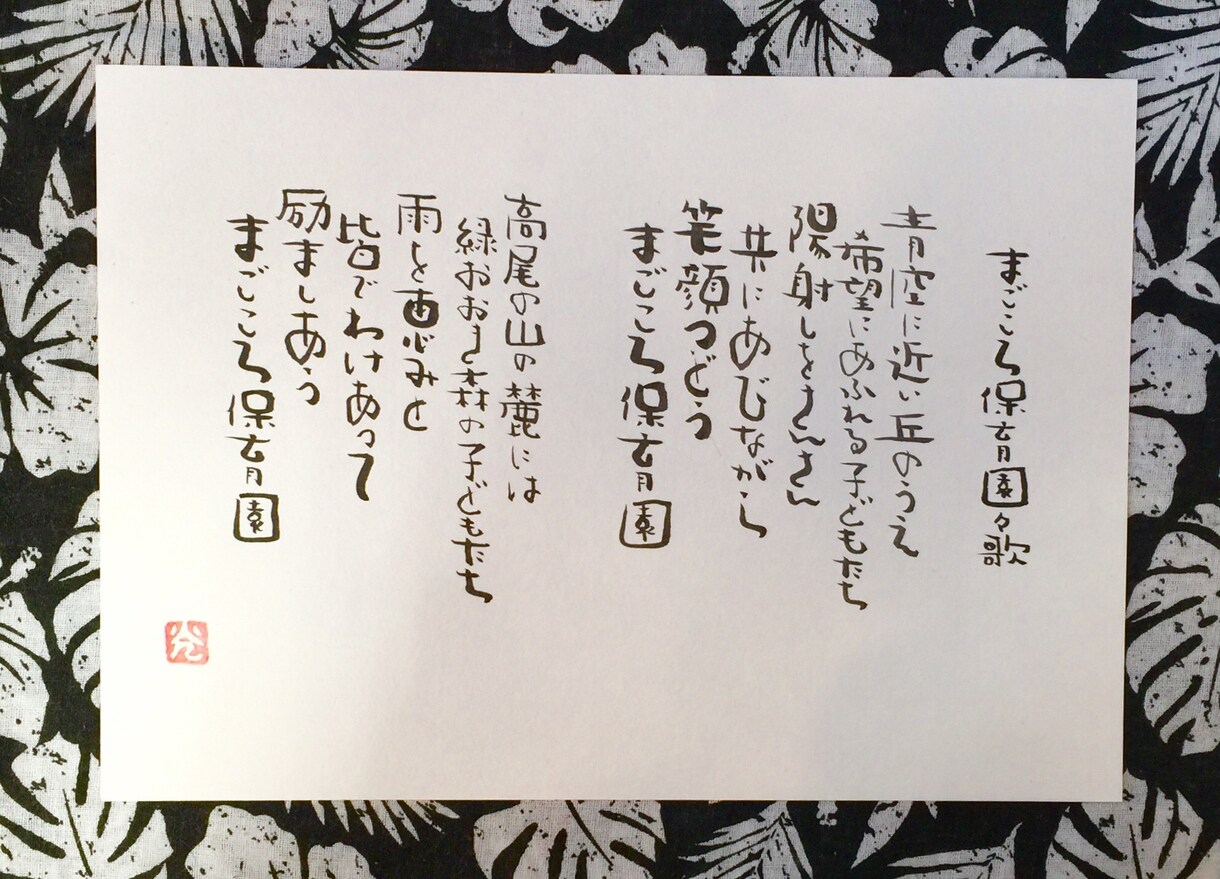 まごころ保育園々歌
青空に近い丘のうえ
希望にあふれる子どもたち
陽射しをさんさん
共にあびながら
笑顔つどう
まごころ保育園
高尾の山の麓には
緑おおき森の子どもたち
雨を恵みと
皆でわけあって
励ましあう
まごころ保育園